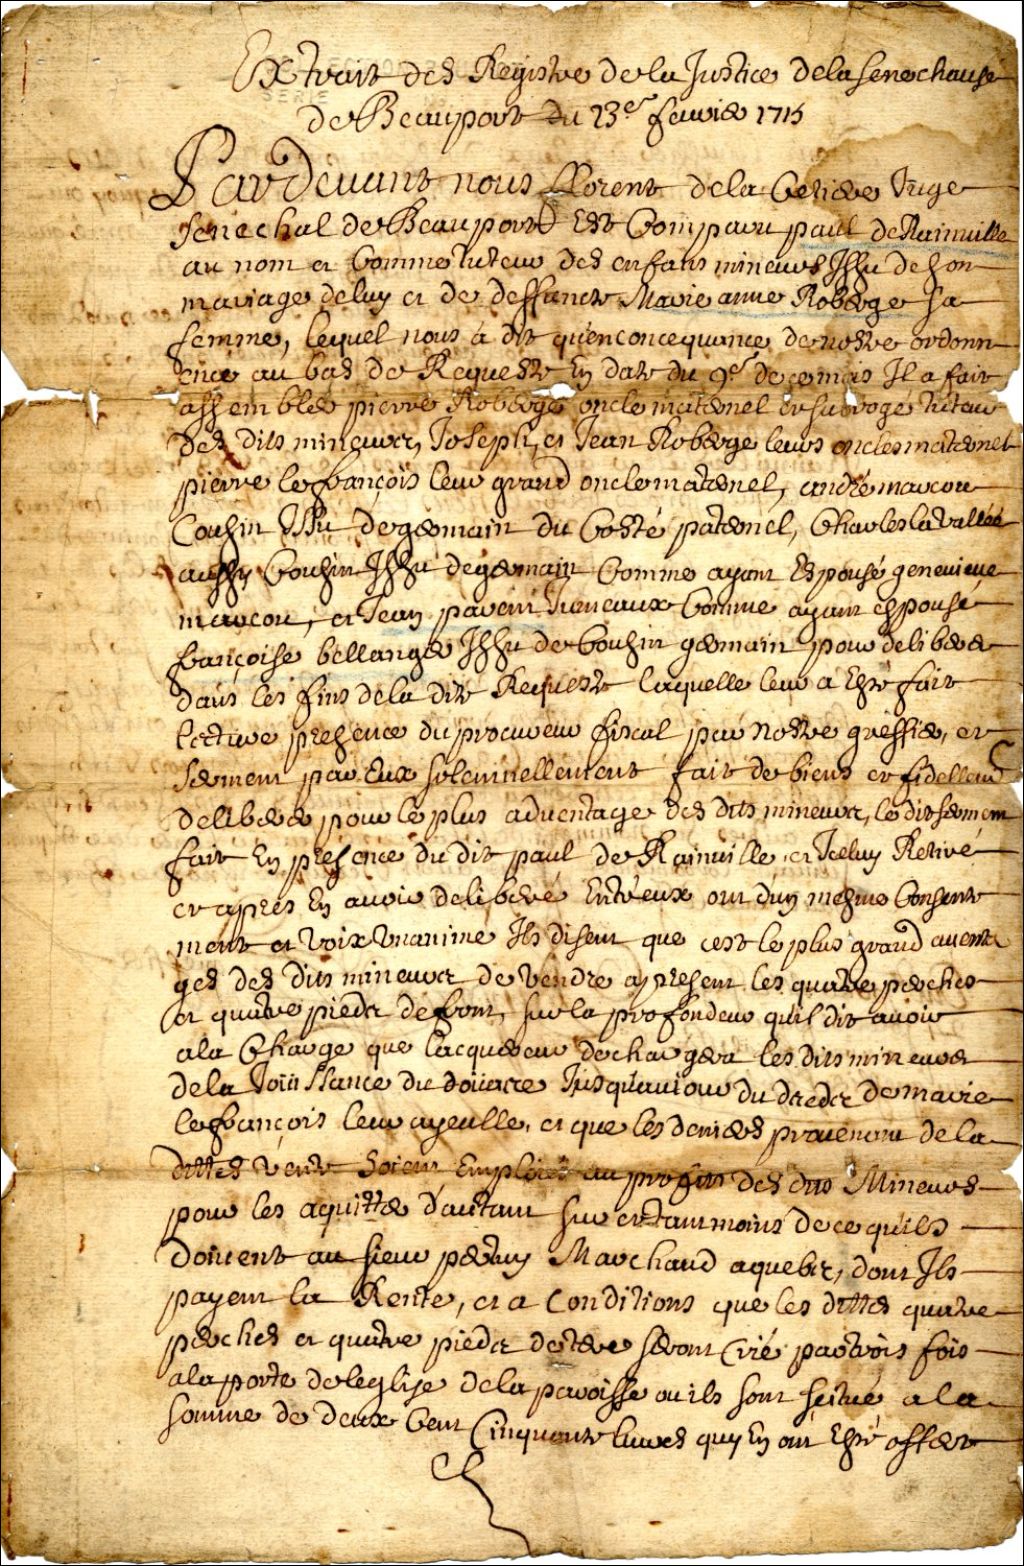 Extrait des Registre de la Justice de la senechausé
de Beauport du 23e feuvier 1715
Pardeuant nous florent de la Cetiere Juge
senechal de Beauport Est Comparu paul de Rainuille
au nom et Comme tuteur des enfans mineurs Issu de son
mariage de luy et de deffuncte Marie anne Roberge sa
femme, lequel nous à dit qu'enconcequance de nostre ordonn
ence au bas de Requeste En date du 9e de ce mois Il a fait
assembler pierre Roberge oncle maternel et subroge tuteur
des dits mineurs, Joseph, et Jean Roberge leurs oncles maternel
pierre lefrançois leur grand oncle maternel, andré marcou
Coussin Issu de germain du Costé paternel, Charles lavallée
aussy Coussin Issu de germain Comme ayant Espousé geneuieue
marcou, et Jean parent Tumeaux Comme ayant espousé
françoise bellanger Issu de Coussin germain pour deliberer
dans les fins de la dite Requeste laquelle leur a Esté fait
lecture presence du procureur fiscal par nostre greffier, et
serment par Eux solemnellement fait de biens et fidellem
deliberer pour le plus aduentage des dits mineurs, le dit sermen
fait En presence du dit paul de Rainuille et Iceluy Retiré
et apres En auoir deliberé Entr'eux ont d'un mesme Consente
ment et voix vnanime Ils disent que c'est le plus grand auenta
ges des dits mineurs de vendre apresent les quatre perches
et quatre pieds de front, sur la profondeur qu'il dit auoir
a la Charge que lacquereur dechargera les dits mineurs
de la Joüissance du doüarre Jusqu'au jour du deceds de marie
lefrançois leur ayeulle, et que les deniers prouenant de la
dittes vente soient Emploiés au profits des dits Mineurs
pour les aquitter d'autant sur et tant moins de ce qu'ils
doiuent au sieur perthuy Marchand a quebec, dont Ils
payent la Rente, et a Conditions que les dittes quatre
perches et quatre pieds de terre seront Crié par trois fois
a la porte de leglise de la paroisse ou ils sont scitué a la
somme de deux Cent Cinquante liures quy En ont Esté offert